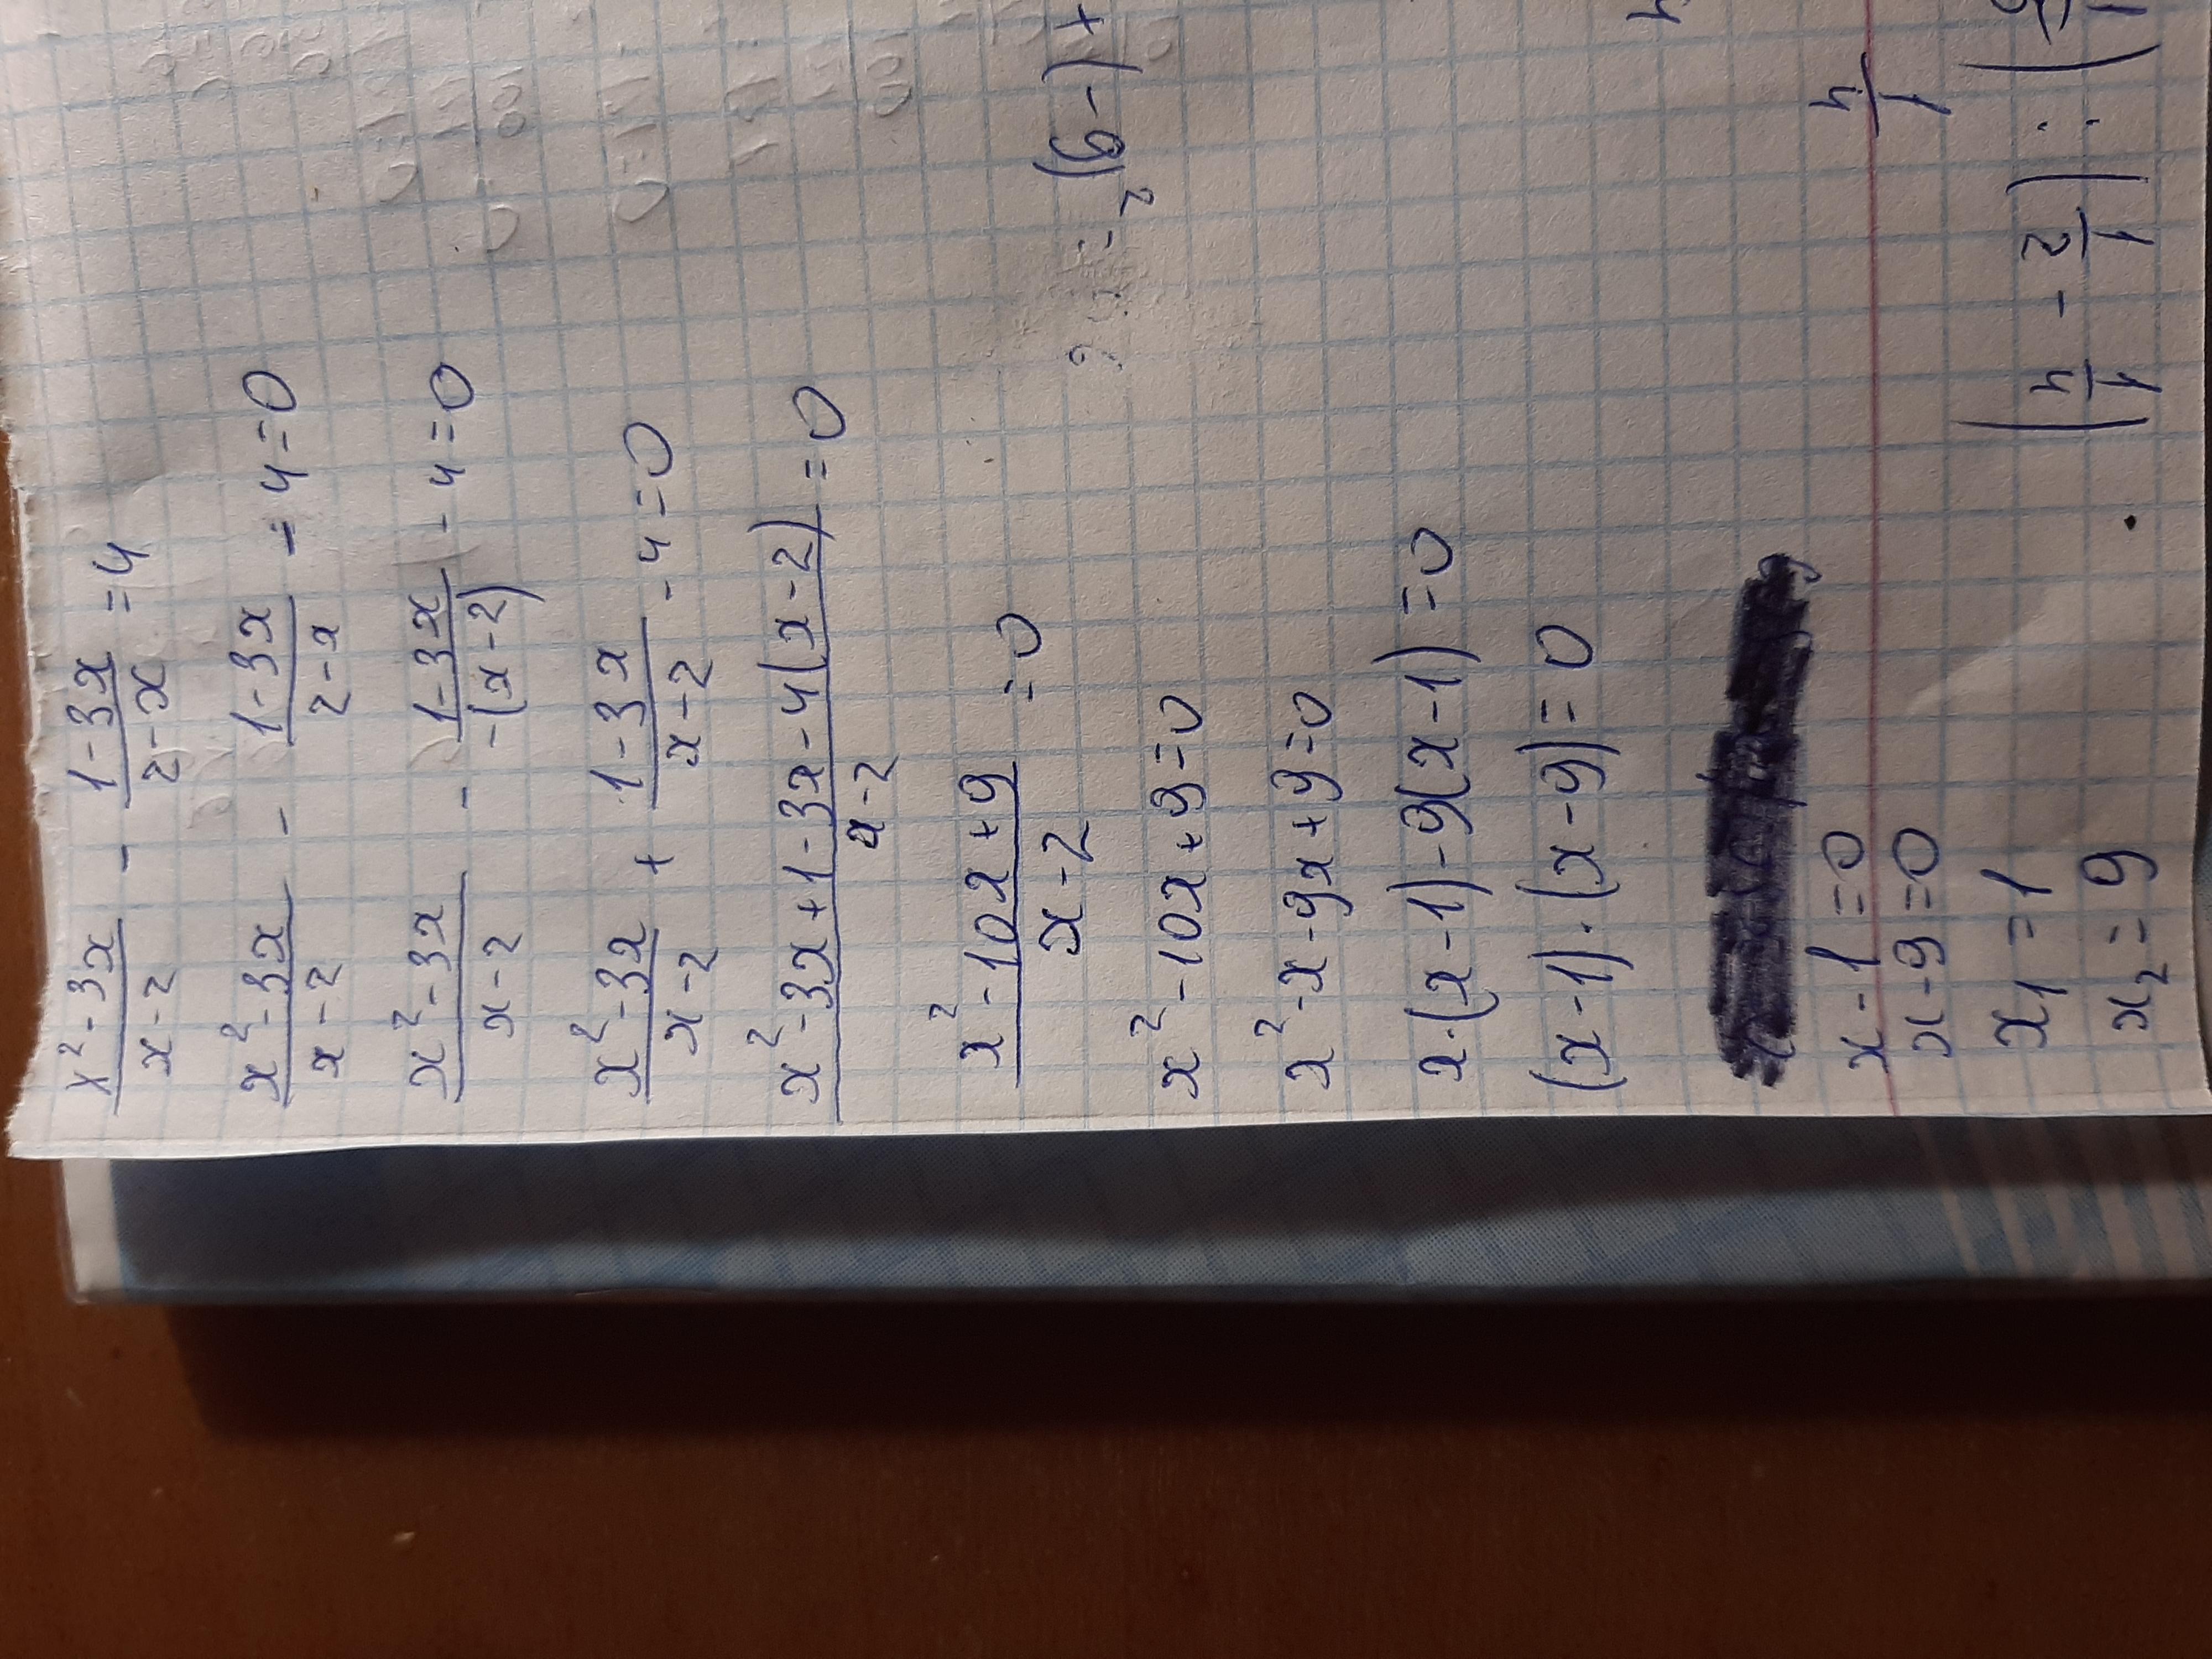 x² - 3x / x - 2 - 1 - 3x / 2 - x = 4
x² - 3x / x - 2 - 1 - 3x / 2 - x - 4 = 0
x² - 3x / x - 2 - 1 - 3x / -(x - 2) - 4 = 0
x² - 3x / x - 2 + 1 - 3x / x - 2 - 4 = 0
x² - 3x + 1 - 3x - 4(x - 2) / x - 2 = 0
x² - 10x + 9 / x - 2 = 0
x² - 10x + 9 = 0
x² - x - 9x + 9 = 0
x · (x - 1) - 9(x - 1) = 0
(x - 1) · (x - 9) = 0
x - 1 = 0
x - 9 = 0
x₁ = 1
x₂ = 9
(1/4 - 1/2) : (